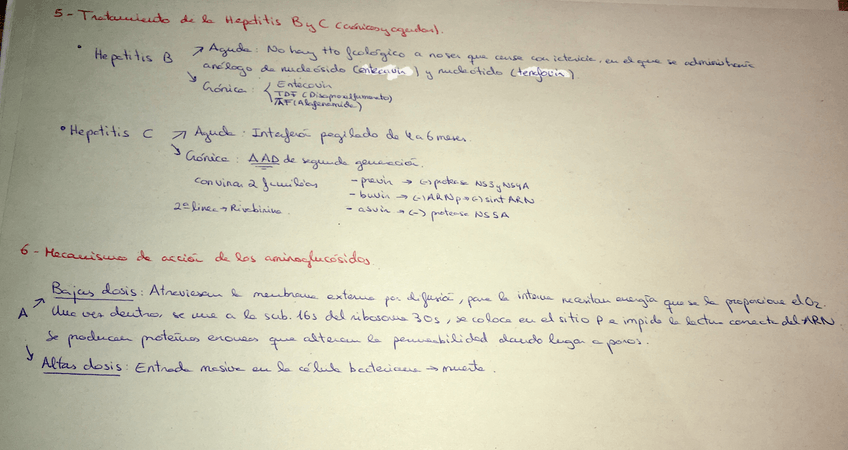 5 - Tratamiento de la Hepatitis B y C (crónicos y agudos).
• Hepatitis B ↗ Aguda: No hay tto fcológico a no ser que curse con ictericia, en el que se administraría
análogo de nucleósido (entecavir) y nucleótido (tenofovir)
↘ Crónica: Entecavir
TDF (Disoproxilfumarato)
TAF (Alafenamida)
• Hepatitis C ↗ Aguda: Interferón pegilado de 4 a 6 meses.
↘ Crónica: AAD de segunda generación.
convinar 2 familias - previr → (-) proteasa NS3 y NS4A
- buvir → (-) ARNp → (-) sint ARN
2ª linea → Rivabirina. - asvir → (-) proteasa NS5A
6 - Mecanismo de acción de los aminoglucósidos.
Bajas dosis: Atraviesan la membrana externa por difusión, para la interna necesitan energía que se la proporciona el O2.
A ↗ Una vez dentro, se une a la sub. 16s del ribosoma 30s, se coloca en el sitio P e impide la lectura correcta del ARN.
Se producen proteínas erroneas que alteran la permeabilidad dando lugar a poros.
↘ Altas dosis: Entrada masiva en la célula bacteriana → muerte.